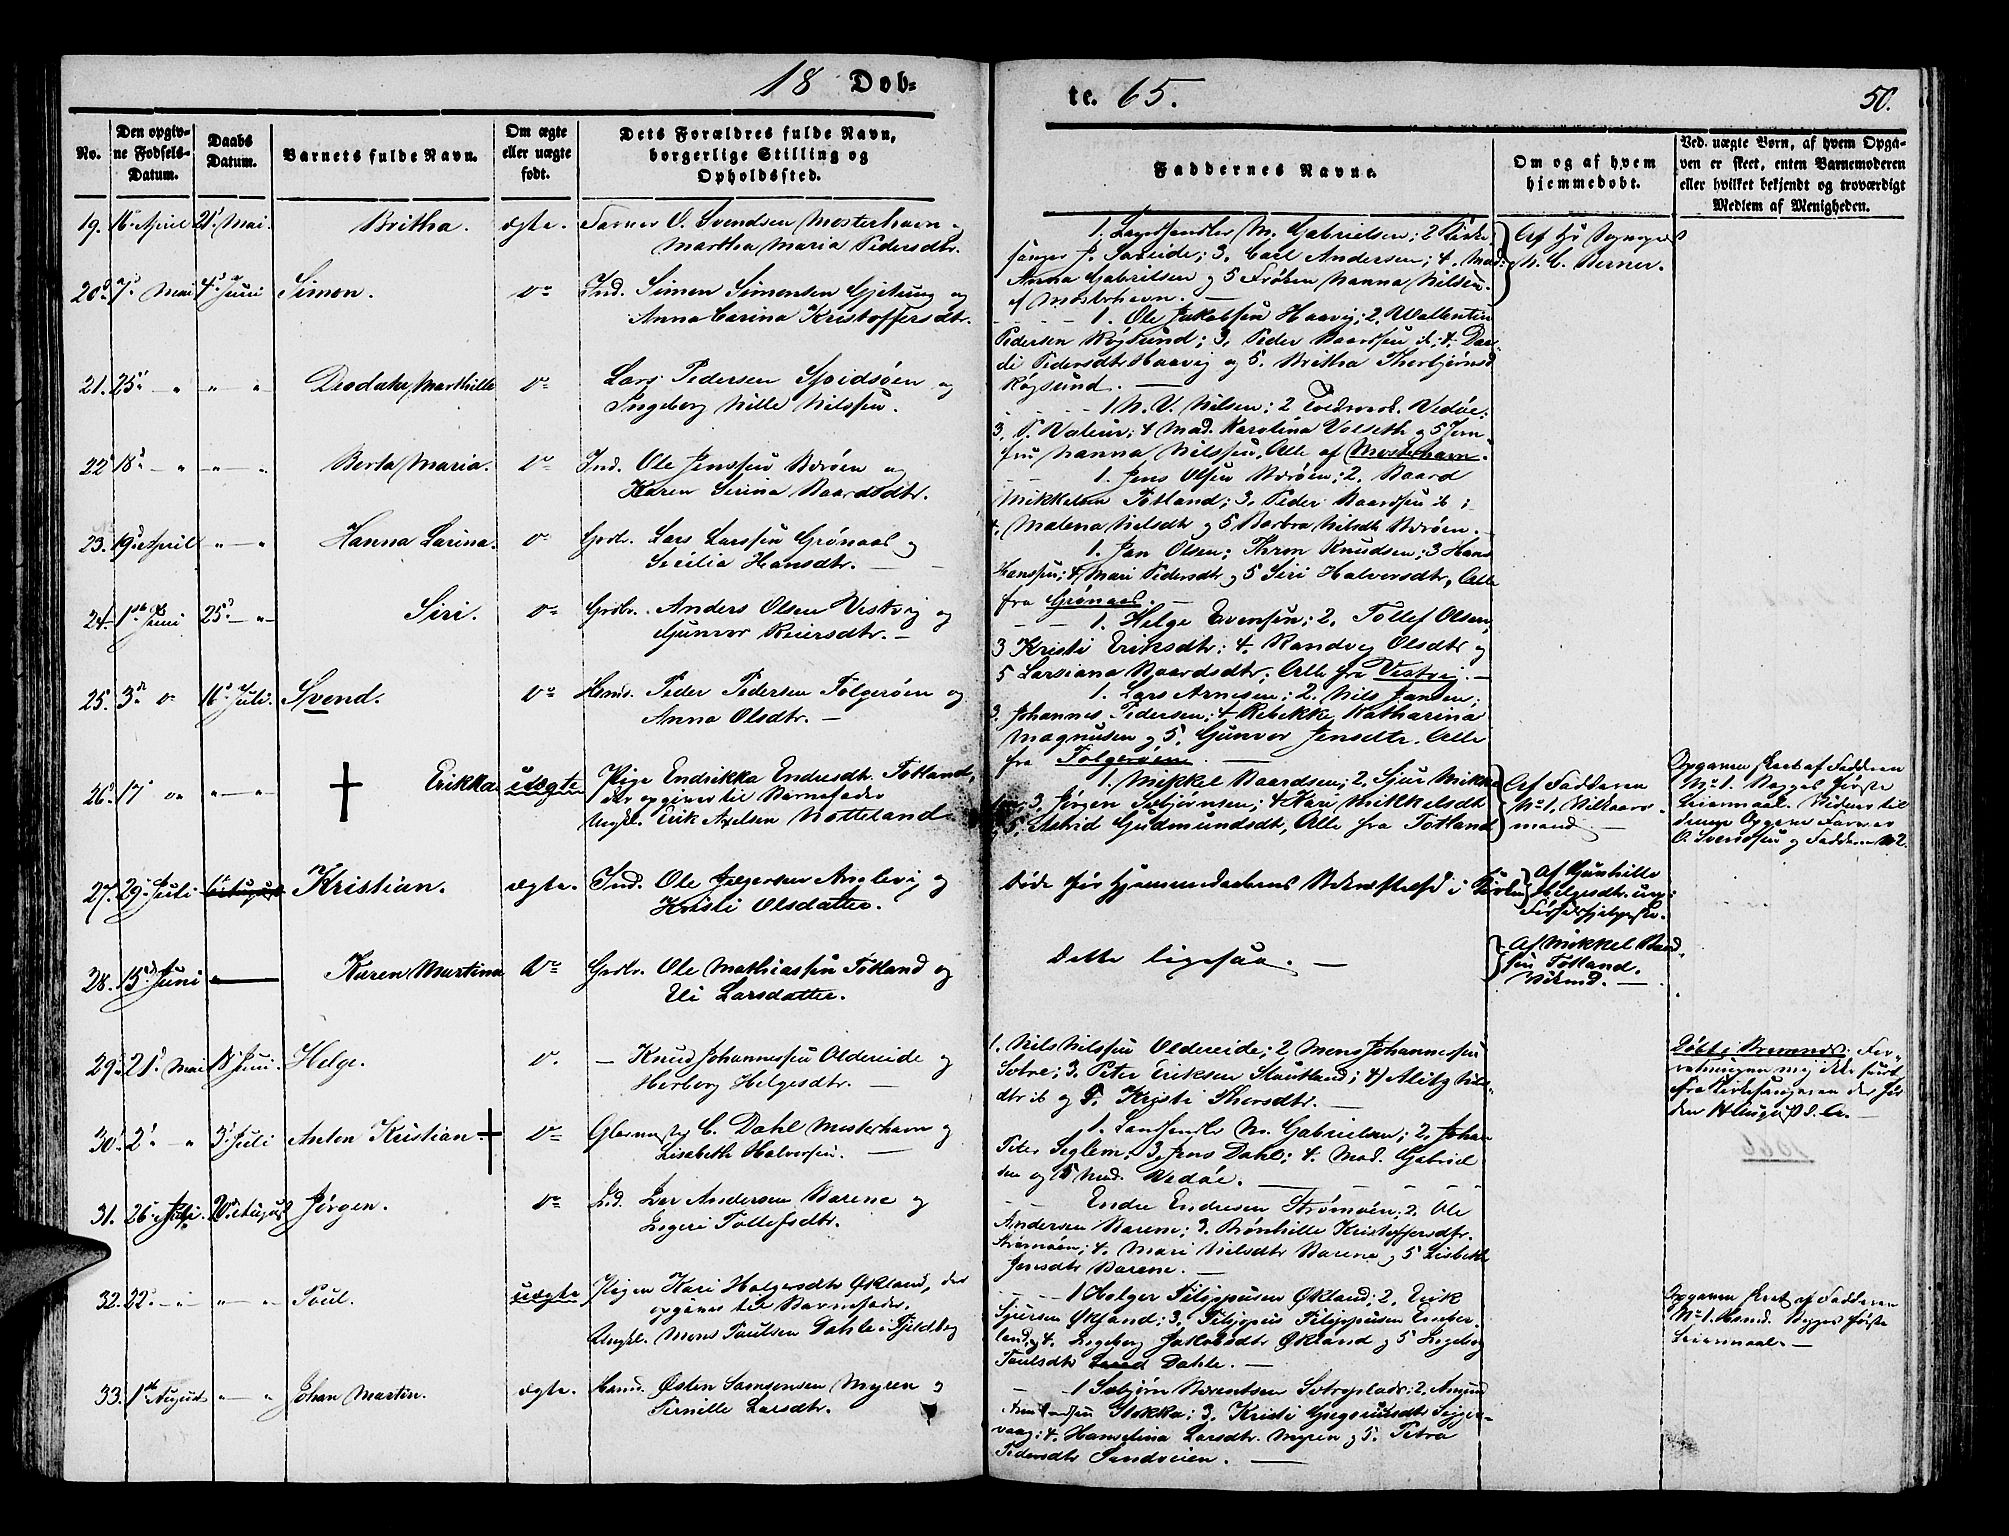 18 Døb=
te. 65.
50.
No.
Den opgiv=
ne Fødsels=
Datum.
Daabs
Datum.
Barnets fulde Navn.
Om ægte
eller uægte
født.
Dets Forældres fulde Navn,
borgerlige Stilling og
Opholdssted.
Faddernes Navne.
Om og af hvem
hjemmedøbt.
Ved uægte Børn, af hvem Opga=
ven er skeet, enten Barnemoderen
eller hvilket bekjendt og troværdigt
Medlem af Menigheden.
19. 16 April 21 Mai. Britha. ægte. Farver O. Svendsen Mosterhavn og
Martha Maria Pedersdtr.
1. Landhandler M. Gabrielsen; 2 Kirke
sanger J. Sareide; 3. Carl Andersen; 4. Mad:
Anna Gabrielsen og 5 Frøken Nanna Nilsen
af Mosterhavn.
N. C. Berner.
20. 7. Mai 4. Juni Simon. do Ind. Simon Simonsen Gjetung og
Anna Carina Kristoffersdtr.
1. Ole Jakobsen Haavig; 2. Wallentin
Pedersen Røgsund; 3. Peder Baardsen ib; 4.
Pedersdtr Haavig og 5. Britha Thorbjørnsd
Røgsund.
21. 25. - " " - " Deodata Marthille do Lars Pedersen Spidsøen og
Ingeborg Nille Nilssen.
1 N. V. Nilsen; 2 Vedøe;
3. P. Valeur; 4 Mad. Karolina Volseth og 5 Jom-
fru Nanna Nilssen, Alle af Mosterhavn.
22 18. - " " - " Berta Maria. do Ind. Ole Jenssen Børøen og
Karen Serina Baardsdtr.
1. Jens Olsen Børøen; 2. Baard
Mikkelsen Totland; 3. Peder Baardsen ib;
4. Malena Nilsdtr og 5 Barbra Nilsdtr Børøen.
23. 19. April " - " Hanna Larina. do Grdbr. Lars Larssen Grønaas og
Sicilia Hansdtr.
1. Jan Olsen; Knudsen; 3 Hans
Hanssen; 4 Mari Pedersdtr og 5 Siri Halversdtr, Alle
fra Grønaas.
24. 1ste Juni 25. - " Siri. do Grdbr. Anders Olsen Vestvig og
Gunvor Reiersdtr.
1. Helge Evensen; 2. Tollef Olsen,
3 Kristi Eriksdtr; 4. Randvig Olsdtr og
5 Larsiana Baardsdtr; Alle fra Vestvig.
25. 3. do 16. Juli. Svend. do Hmd. Peder Pedersen Folgerøen og
Anna Olsdtr.
1. Lars Arnesen; 2. Nils Jansen;
3. Johannes Pedersen; 4 Rebekke Katharina
Magnusen og 5. Gunvor Jensdtr. Alle
fra Folgerøen.
26. 17 do " - " Erikka. uægte Pige Endrikka Endresdtr. Totland,
der opgiver til Barnefader
Ungkl. Erik Axelsen Natteland.
1. Mikkel Baardsen; 2. Sjur Mikkel
sen 3. Jørgen Torbjørnsen; 4 Kari Mikkelsdtr
og 5. Astrid Gudmundsdtr, Alle fra Totland
Af Fadderen
No 1. Vilkaars
mand
Opgaven skeet af Fadderen
No 1. Begges første
Leiermaal. Vidner til
denne Opgave Farver
O. Svendsen og Fadderen No 2.
27. 29. Juli Kristian. ægte. Ind. Ole Anglevig og
Kristi Olsdatter.
Døde før Hjemmedaabens Bekræftelse i Kirken
Af Gunhille
Helgesdtr.
28. 15. Juni " Karen Martina do Grdbr. Ole Mathiassen Totland og
Eli Larsdatter.
Dette ligesaa.
Af Mikkel Baard
sen Totland.
29. 21. Mai 18 Juni. Helge. do Knud Johannessen Oldereide og
Herborg Helgesdtr.
1. Nils Nilssen Oldereide; 2 Mons Johannessen
3. Peter Eriksen Stautland; 4)
dtr ib og 5. Kristi Thorsdtr.
Døbt i Bremnes.
30. 2. - " 3. Juli Anton Kristian do C. Dahl Mosterhavn og
Lisabeth Halversen.
1. Landhandler M. Gabrielsen; 2. Johan
Peter Seglem; 3. Jens Dahl; 4. Mad. Gabriel
sen og 5 Mad. Vedøe.
31. 26. Juli. 20. August Jørgen. do Ind. Andersen Barene og
Tollefsdtr.
Endre Endresen Strømøen; 2. Ole
Andersen Barene; 3. Brønhille Kristoffersdtr.
Strømøen; 4. Mari Nilsdtr Barene og 5 Lisbeth
Jensdtr Barene.
32. 22. - " " - " Poul. uægte Pigen Kari Holgersdtr Økland, der
opgiver til Barnefader.
Ungkl. Mons Paulsen Dahle i Fjeldberg
1 Holger Filippusen Økland; 2. Erik
Sjursen Økland; 3. Filippus Filippusen
4. Ingeborg Jakobsdtr Økland og 5 Ingeborg
Paulsdtr Dahle.
Opgaven skeet af Fadderen
No 1. Begges første
Leiermaal.
33. 1ste August " - " Johan Martin. ægte. Østen Samsonsen Myren og
Pernille Larsdtr.
1 Torbjørn Berentsen 2. Amund
Stokka; 3. Kristi
4. Hanselina Larsdtr. Myren og 5. Petra
Pedersdtr Sandveien.